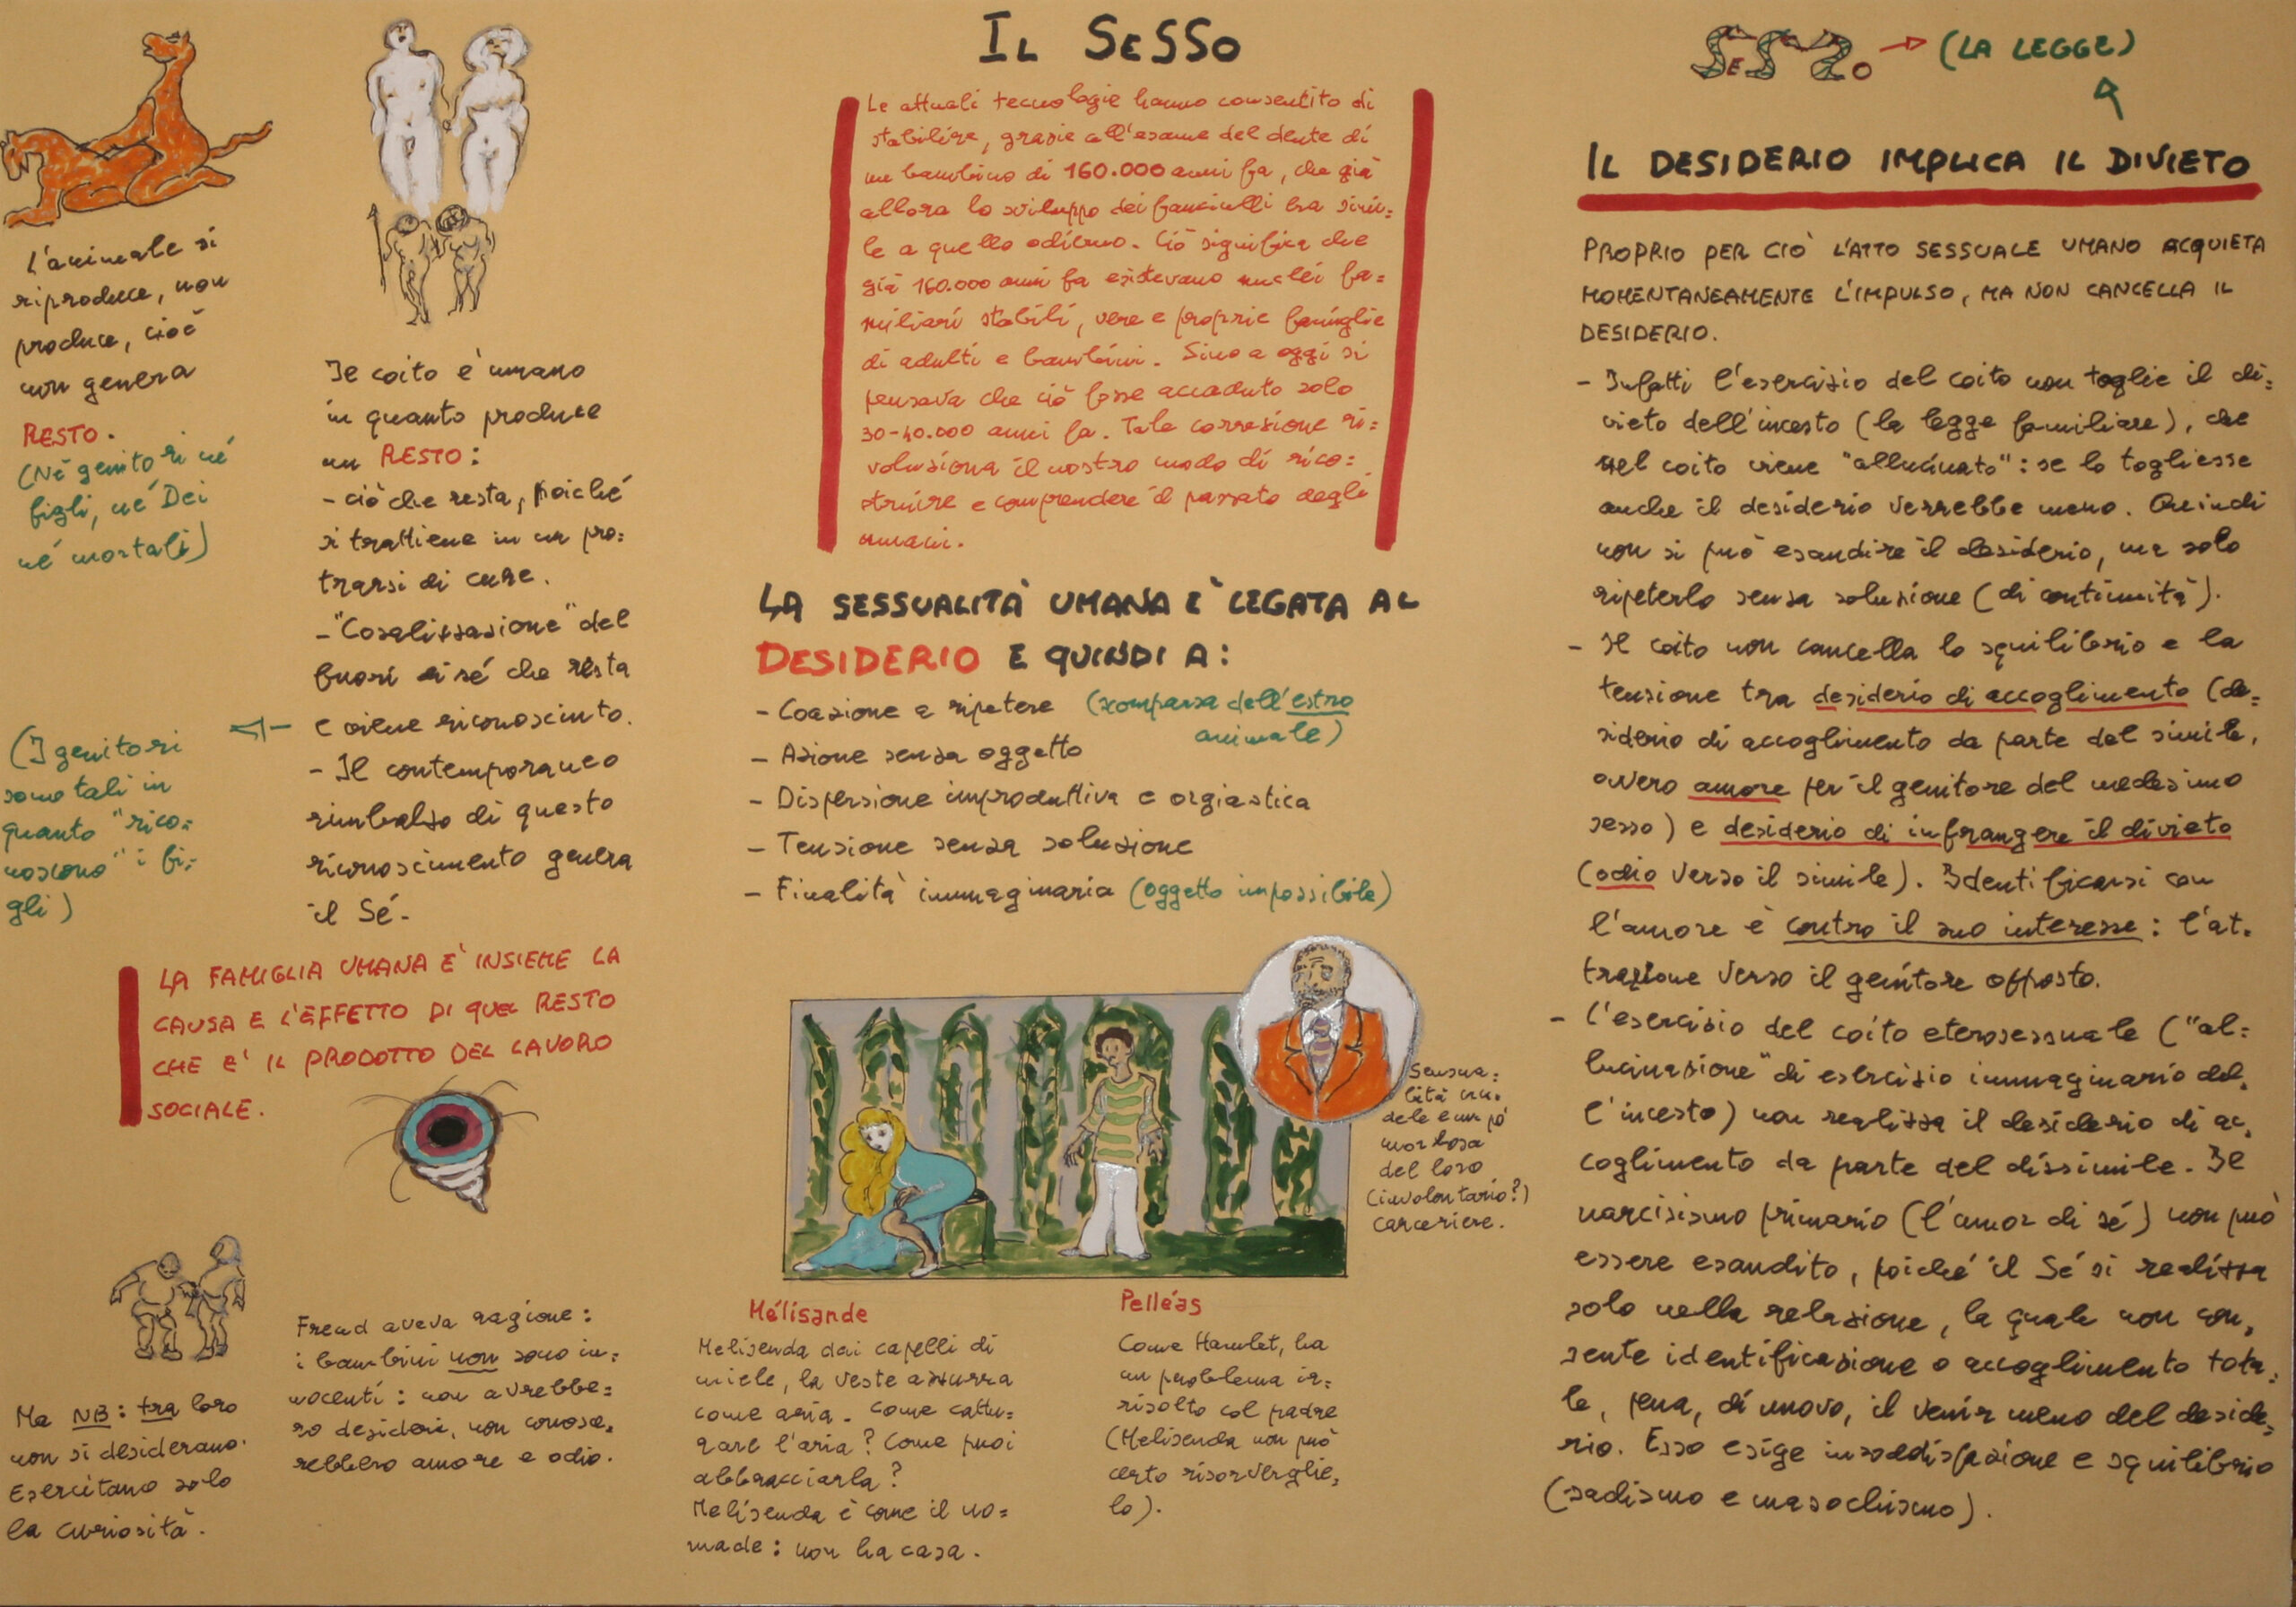 L'animale si
riproduce, non
produce, cioè
non genera
RESTO.
(Né genitori né
figli, né Dei
né mortali)
Il coito è umano
in quanto produce
un RESTO:
- ciò che resta, poiché
si trattiene in un pro=
trarsi di cure.
- "Cosalizzazione" del
fuori di sé che resta
e viene riconosciuto.
(I genitori
sono tali in
quanto "rico=
noscono" i fi=
gli)
- Il contemporaneo
rimbalzo di questo
riconoscimento genera
il Sé.
LA FAMIGLIA UMANA E' INSIEME LA
CAUSA E L'EFFETTO DI QUEL RESTO
CHE E' IL PRODOTTO DEL LAVORO
SOCIALE.
Ma NB: tra loro
non si desiderano.
Esercitano solo
la curiosità.
Freud aveva ragione:
i bambini non sono in=
nocenti: non avrebbe=
ro desideri, non conosce=
rebbero amore e odio.
IL SESSO
Le attuali tecnologie hanno consentito di
stabilire, grazie all'esame del dente di
un bambino di 160.000 anni fa, che già
allora lo sviluppo dei fanciulli era simi=
le a quello odierno. Ciò significa che
già 160.000 anni fa esistevano nuclei fa=
miliari stabili, vere e proprie famiglie
di adulti e bambini. Sino a oggi si
pensava che ciò fosse accaduto solo
30-40.000 anni fa. Tale correzione ri=
voluziona il nostro modo di rico=
struire e comprendere il passato degli
umani.
LA SESSUALITÀ UMANA E' LEGATA AL
DESIDERIO E QUINDI A:
- Coazione a ripetere (scomparsa dell'estro
animale)
- Azione senza oggetto
- Dispersione improduttiva e orgiastica
- Tensione senza soluzione
- Finalità immaginaria (oggetto impossibile)
Sensua=
lità cru=
dele e un pò
morbosa
del loro
(involontario?)
carceriere.
Mélisande
Melisenda dai capelli di
miele, la veste azzurra
come aria. Come cattu=
rare l'aria? Come puoi
abbracciarla?
Melisenda è come il no=
made: non ha casa.
Pelléas
Come Hamlet, ha
un problema ir=
risolto col padre
(Melisenda non può
certo risorverglie=
lo).
SESSO → (LA LEGGE)
IL DESIDERIO IMPLICA IL DIVIETO
PROPRIO PER CIÒ L'ATTO SESSUALE UMANO ACQUIETA
MOMENTANEAMENTE L'IMPULSO, MA NON CANCELLA IL
DESIDERIO.
- Infatti l'esercizio del coito non toglie il di=
vieto dell'incesto (la legge familiare), che
nel coito viene "allucinato": se lo togliesse
anche il desiderio verrebbe meno. Quindi
non si può esaudire il desiderio, ma solo
ripeterlo senza soluzione (di continuità).
- Il coito non cancella lo squilibrio e la
tensione tra desiderio di accoglimento (de=
siderio di accoglimento da parte del simile,
ovvero amore per il genitore del medesimo
sesso) e desiderio di infrangere il divieto
(odio verso il simile). Identificarsi con
l'amore è contro il suo interesse: l'at=
trazione verso il genitore opposto.
- L'esercizio del coito eterosessuale ("al=
lucinazione" di esercizio immaginario del=
l'incesto) non realizza il desiderio di ac=
coglimento da parte del dissimile. Il
narcisismo primario (l'amor di sé) non può
essere esaudito, poiché il Sé si realizza
solo nella relazione, la quale non con=
sente identificazione o accoglimento tota=
le, pena, di nuovo, il venir meno del deside=
rio. Esso esige insoddisfazione e squilibrio
(sadismo e masochismo).